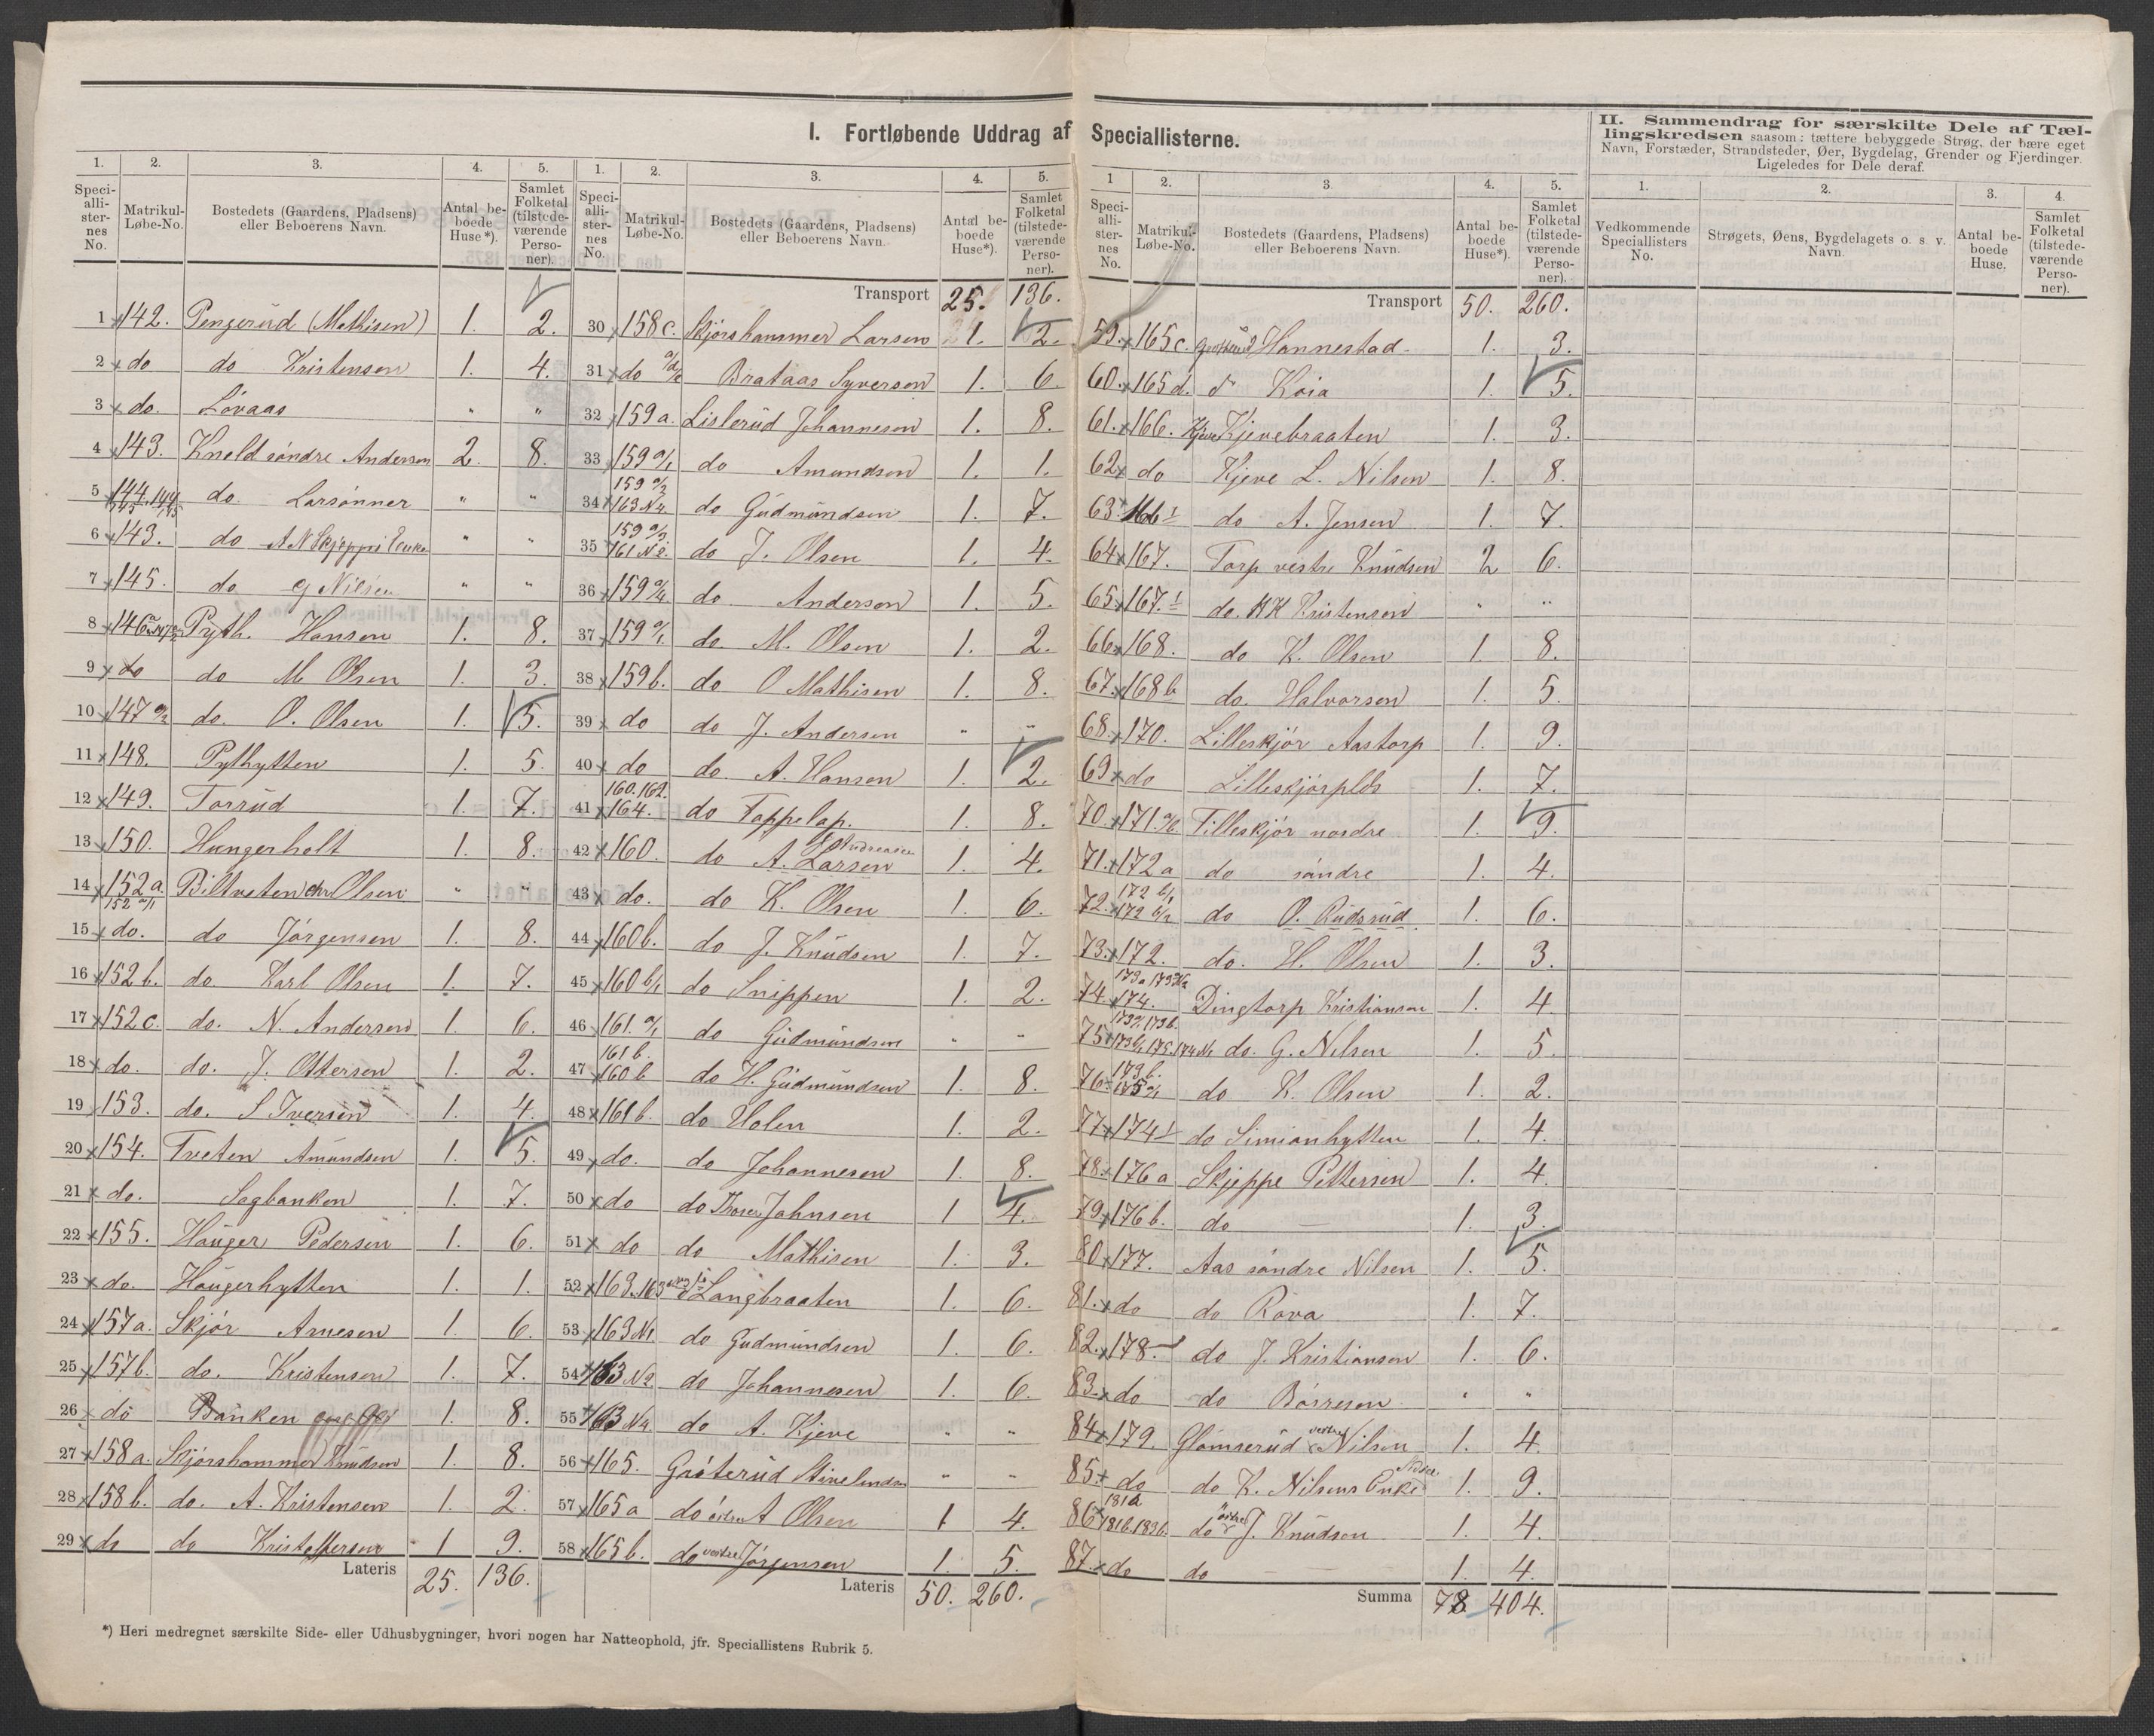 I. Fortløbende Uddrag af Speciallisterne.
1. 2. 3. 4. 5.
Speciallisternes No. Matrikul-Løbe-No. Bostedets (Gaardens, Pladsens) eller Beboerens Navn. Antal beboede Huse*). Samlet Folketal (tilstedeværende Personer).
1 142. Pengerud (Mathisen) 1. 2.
2 do do Kristensen 1. 4.
3 do. Lövaas " "
4 143. Kneld söndre Andersen 2. 8.
5 144. 144 do. Larsönner " "
6 143. do A N Skjeppes Enke " "
7 145. do G Nilsen " "
8 146 Pyth. Hansen 1. 8.
9 do do M Olsen 1. 3.
10 147 a/2 do. O. Olsen 1. 5.
11 148. Pythytten 1. 5.
12 149. Torrud 1. 7.
13 150. Hungerholt 1. 8.
14 152a. 152 a/1 Biltveten Chr Olsen " "
15 do. do Jörgensen 1. 8.
16 152b. do Karl Olsen 1. 7.
17 152c. do. N. Andersen 1. 6.
18 do. do. J. Ottersen 1. 2.
19 153. do. S Iversen 1. 4.
20 154. Tveten Amundsen 1. 5.
21 do. Sagbanken 1. 7.
22 155. Hauger Pedersen 1. 6.
23 do. Haugerhytten 1. 1.
24 157a. Skjör Arnesen 1. 6.
25 157b. do. Kristensen 1. 7.
26 do Banken 1. 8.
27 158a. Skjörshammer Knudsen 1. 8.
28 158b. do. A. Kristensen 1. 2.
29 do do Kristoffersen 1 9.
Lateris 25. 136.
1. 2. 3. 4. 5.
Speciallisternes No. Matrikul-Løbe-No. Bostedets (Gaardens, Pladsens) eller Beboerens Navn. Antal beboede Huse*). Samlet Folketal (tilstedeværende Personer).
Transport 25. 136.
30 158c. Skjörshammer Larsen 1. 2.
31 do Brataas Syversen 1. 6.
32 159a. Lislerud Johannesen 1. 8.
33 159 a/1 do Amundsen 1. 1.
34 159 a/2 163 N4 do Gudmundsen 1. 7.
35 159 a/3 161 N2 do J. Olsen 1. 4.
36 159 a/4 do Andersen 1. 5.
37 159 a/1 do. M. Olsen 1. 2.
38 159b. do O Mathisen 1. 8.
39 do do J. Andersen " "
40 do do. A. Hansen 1. 2.
41 160. 162. 164. do Tappelap. 1. 8.
42 160. do A. Larsen Andreasen 1. 4.
43 do. do K. Olsen 1. 6.
44 160b. do J. Knudsen 1. 7.
45 160 b/1 do Snippen 1. 2.
46 161. a/1 do Gudmundsen " "
47 161b. 160b do H. Gudmundsen 1. 8.
48 161b. do Holen 1. 2.
49 do. do Johannesen 1. 8.
50 do do Johnsen 1 4.
51 do do Mathisen 1. 3.
52 163. Langbraaten 1. 6.
53 163 N1 do Gudmundsen 1. 6.
54 163 N2 do Johannesen 1. 6.
55 163 N4 do A. Kjeve " "
56 165. Gröterud " "
57 165a do östre A Olsen 1 4.
58 165b. do vestre Jörgensen 1. 5.
Lateris 50. 260.
1 2. 3. 4. 5.
Speciallisternes No. Matrikul-Løbe-No. Bostedets (Gaardens, Pladsens) eller Beboerens Navn. Antal beboede Huse*). Samlet Folketal (tilstedeværende Personer).
Transport 50. 260.
59. 165c. Hannestad 1. 3.
60. 165d. do Koia 1. 5.
61. 166. Kjevebraaten 1. 3.
62 do Kjeve L. Nilsen 1. 8.
63. 166 1 do A. Jensen 1. 7.
64 167. Torp vestre Knudsen 2 6.
65. 167. 1 do. KK Kristensen " "
66 168. do K. Olsen 1. 8.
67. 168b do. Halvorsen 1. 5.
68. 170. Lilleskjör Aastorp 1. 9.
69 do Lilleskjörplds 1. 7.
70. 171. a/b Lilleskjör nordre 1. 9.
71. 172a do söndre 1. 4.
72. 172 b/1 172 b/2 do O. Rudsrud 1. 6.
73. 172. do. H. Olsen 1. 3.
74 174. Dingtorp Kristiansen 1. 4
75 do. G. Nilsen 1. 5.
76. 173b. 175 a/1 do K. Olsen 1. 2.
77 174 1 do Simianhytten 1. 4.
78. 176a Skjeppe Pettersen 1. 4.
79 176b. do — 1. 3.
80 177. Aas söndre Nilsen 1. 5.
81. do do Röva 1. 7.
82. 178. do J. Kristiansen 1. 6.
83. do do Börresen " "
84 179. Glomserud vestre Nilsen 1. 4.
85. do do K. Nilsens Enke 1. 9.
86 181a 181b. 183b. do östre J. Knudsen 1. 4.
87. do do — 1. 4.
Summa 78 404.
II. Sammendrag for særskilte Dele af Tællingskredsen saasom: tættere bebyggede Strøg, der bære eget Navn, Forstæder, Strandsteder, Øer, Bygdelag, Grender og Fjerdinger. Ligeledes for Dele deraf.
1. 2. 3. 4.
Vedkommende Speciallisters No. Strøgets, Øens, Bygdelagets o. s. v. Navn. Antal beboede Huse. Samlet Folketal (tilstedeværende Personer).
*) Heri medregnet særskilte Side- eller Udhusbygninger, hvori nogen har Natteophold, jfr. Speciallistens Rubrik 5.